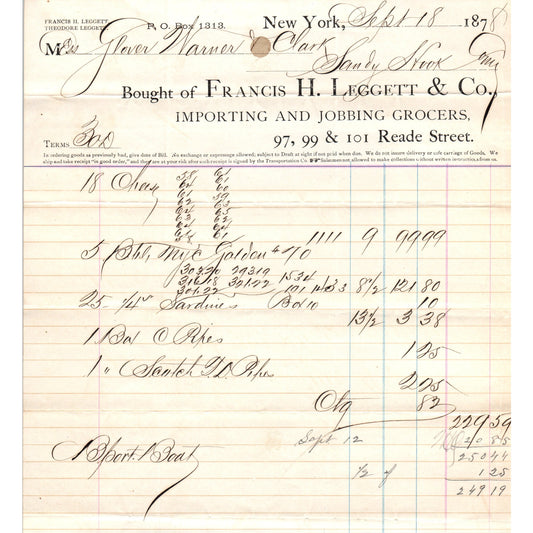 FRANCIS H. LEGGETT.
THEODORE LEGGETT.
P. O. Box 1313.
New York, Sept 18 1878
Mess Glover Warner & Clark
Sandy Hook Conn
Bought of FRANCIS H. LEGGETT & Co.,
IMPORTING AND JOBBING GROCERS,
TERMS 30 D
97, 99 & 101 Reade Street.
In ordering goods as previously had, give date of Bill. No exchange or expressage allowed; subject to Draft at sight if not paid when due. We do not insure delivery or safe carriage of Goods. We
ship and take receipt "in good order," and they are at your risk after such receipt is signed by the Transportation Co. Salesmen not allowed to make collections without written instructions from us.
18 Cheese
58 61
64 60
61 59
62 63
64 65
63 62
64 64
64 61
1111 9 99 99
5 Bbl Golden 70
303.20 293.19
316.18 301.22 1534
301.22 101 8 1/2 121 80
25 1/4 Sardines Box 10 10
13 1/2 3 38
1 Box C Pipes 1 25
1 " Scotch T.D. Pipes 2 25
Ctg 82
229 59
Sept 12 20 85
250 44
1/2 of 1 25
249 19
Bport Boat